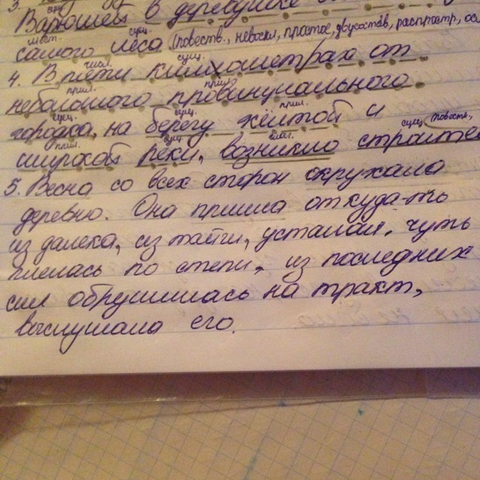 3.
Варюшей в деревушке
сущ.
мест. сущ. (повеств., невоскл., простое, двусостав, распростр, ос
самого леса
числ. сущ.
4. В пяти километрах от
прил. прил.
небольшого провинциального
сущ. сущ. прил.
городка, на берегу жёлтой и
прил. сущ. глаг. сущ. (повеств,
широкой реки, возникло строител
5. Весна со всех сторон окружала
деревню. Она пришла откуда-то
из далека, из тайги, усталая, чуть
плелась по степи, из последних
сил обрушилась на тракт,
выслушала его.